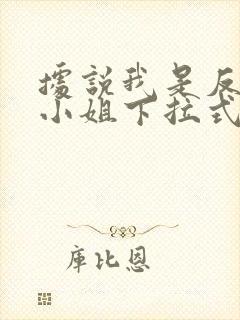 據說我是反
小姐下拉式
庫比恩